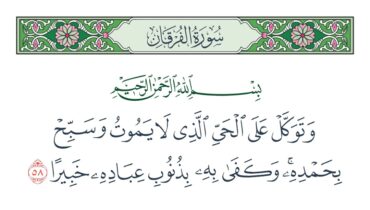 سُورَةُ الفُرْقَان
بِسْمِ ٱللَّهِ ٱلرَّحْمَٰنِ ٱلرَّحِيمِ
وَتَوَكَّلْ عَلَى ٱلْحَىِّ ٱلَّذِى لَا يَمُوتُ وَسَبِّحْ
بِحَمْدِهِۦ ۚ وَكَفَىٰ بِهِۦ بِذُنُوبِ عِبَادِهِۦ خَبِيرًا ٥٨